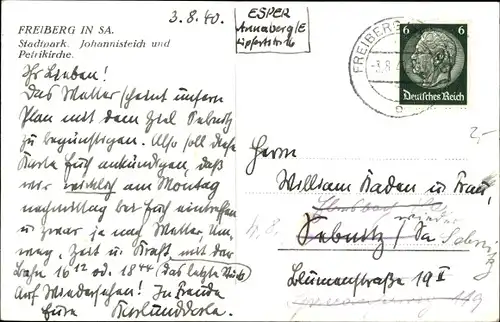 FREIBERG IN SA.
Stadtpark. Johannisteich und
Petrikirche.
3.8.40.
ESPER
Annaberg/E
FREIBERG
-3.8.4
6 6
Deutsches Reich
Ihr Lieben!
Das Wetter scheint unsern
Plan mit dem Ziel Sebnitz
zu begünstigen. Also soll diese
Karte Euch ankündigen, daß
wir wirklich am Montag
nachmittag bei Euch eintreffen
u zwar je nach Wetter, Um-
weg, Zeit u. Kraft mit der
Bahn 16 12 od. 18 44 (das letzte
Auf Wiedersehen! In Freude
Eure
Herrn
William Kaden u Frau,
wieder
Sebnitz / Sa Sebnitz
Blumenstraße 19 II
2,-